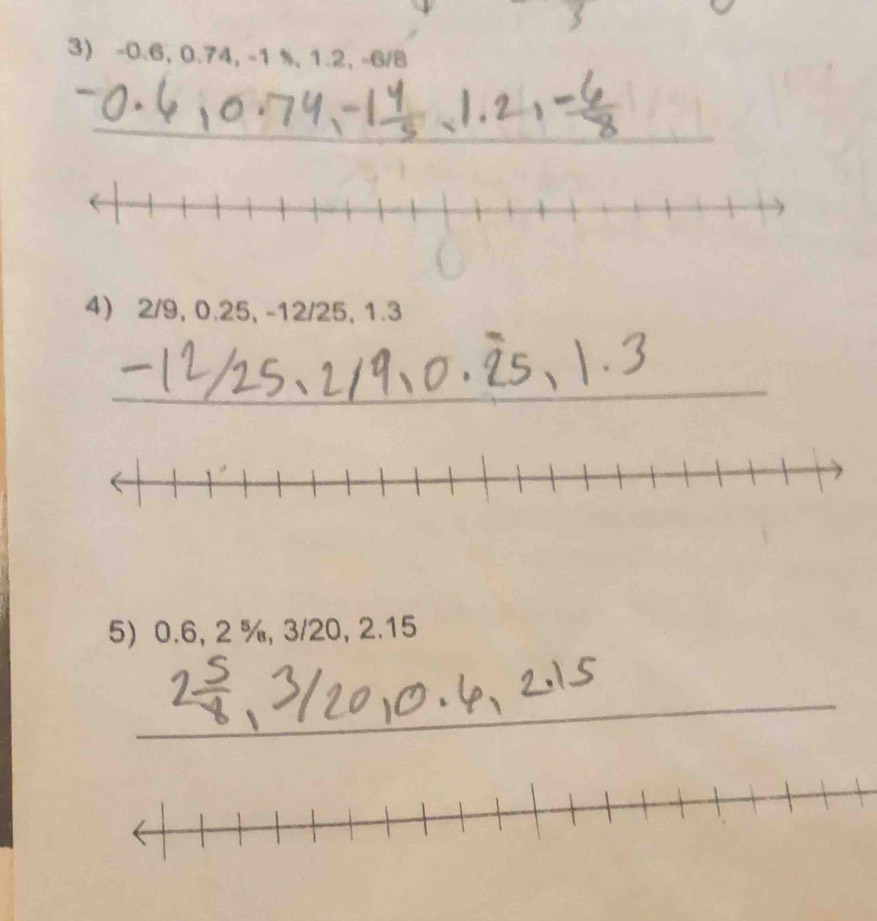 3) -0.6, 0.74, -1 ⅘, 1.2, -6/8
-0.6, 0.74, -1 4/5, 1.2, -6/8
0
4) 2/9, 0.25, -12/25, 1.3
-12/25, 2/9, 0.25, 1.3
5) 0.6, 2 ⅝, 3/20, 2.15
2 5/8, 3/20, 0.6, 2.15